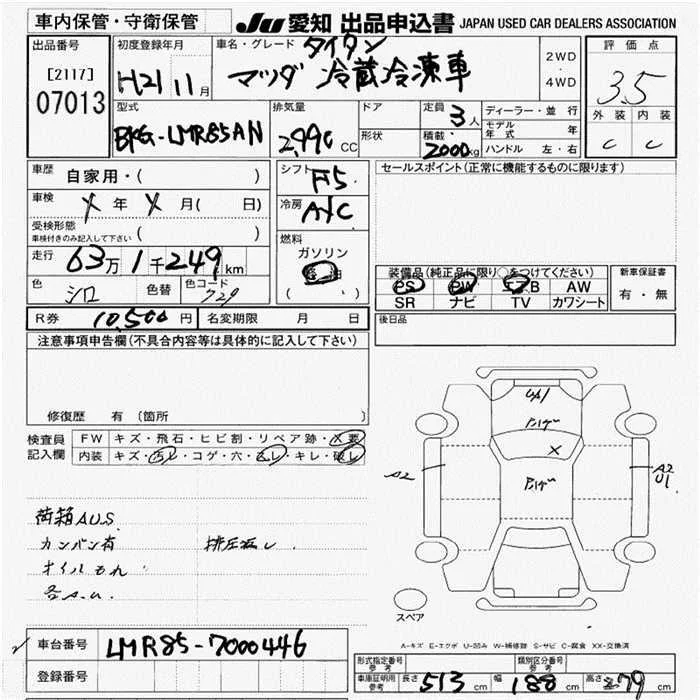 車内保管・守衛保管
JU 愛知 出品申込書 JAPAN USED CAR DEALERS ASSOCIATION
出品番号
[2117]
07013
初度登録年月
H21 11月
車名・グレード タイタン
マツダ 冷蔵冷凍車
2WD
・
4WD
評価点
3.5
外装 内装
C C
型式
BKG-LMR85AN
排気量
2,990 CC
ドア
形状
定員 3人
積載 2000kg
ディーラー・並行
モデル年式 年
ハンドル 左・右
車歴 自家用・( )
車検 年 月( 日)
受検形態
車検付きのみ記入して下さい ( )
走行 63万1千249km
色 シロ 色替 色コード 729
シフト F5
冷房 A/C
燃料
ガソリン
( )
セールスポイント(正常に機能するものに限ります)
装備品(純正品に限り○をつけてください)
PS PW エアB AW
SR ナビ TV カワシート
新車保証書
有・無
R券 10,500円 名変期限 月 日
後日品
注意事項申告欄(不具合内容等は具体的に記入して下さい)
修復歴 有 〔箇所 〕
検査員
記入欄
FW キズ・飛石・ヒビ割・リペア跡・X要
内装 キズ・汚レ・コゲ・穴・スレ・キレ・破レ
UA1
X
A2
A2
U1
荷箱AUS
カンバン有
オイルもれ
各A.U
スペア
A-キズ E-エクボ U-凹み W-補修跡 S-サビ C-腐食 XX-交換済
車台番号 LMR85-7000446
登録番号
形式指定番号
参考
類別区分番号
参考
車庫証明用
参考
長さ 513cm 幅 188cm 高さ 279cm